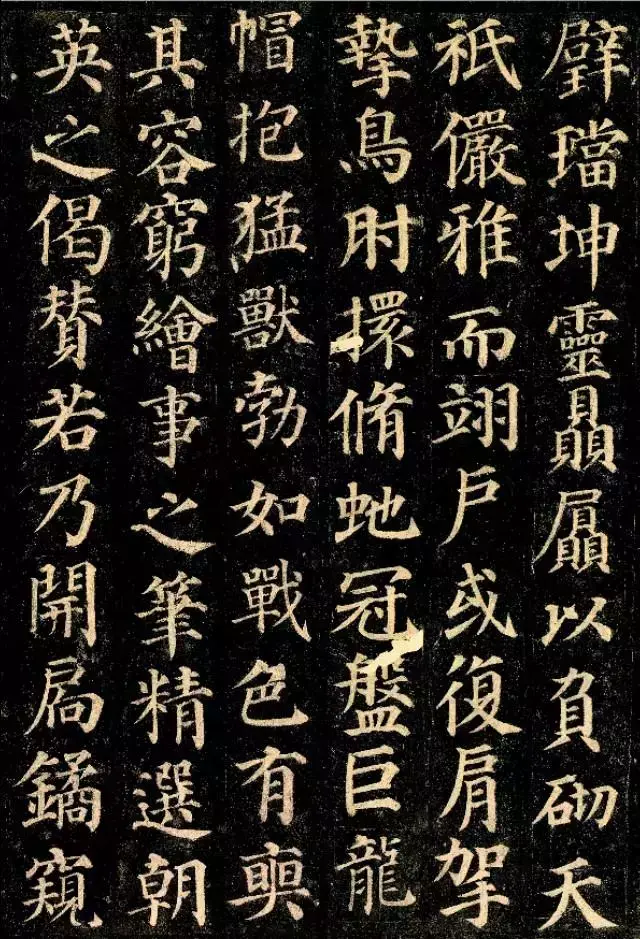 璧璫坤靈贔屭以負砌天
祇儼雅而翊戶或復肩挐
摯鳥肘擐脩虵冠盤巨龍
帽抱猛獸勃如戰色有奭
其容窮繪事之筆精選朝
英之偈贊若乃開扃鐍窺